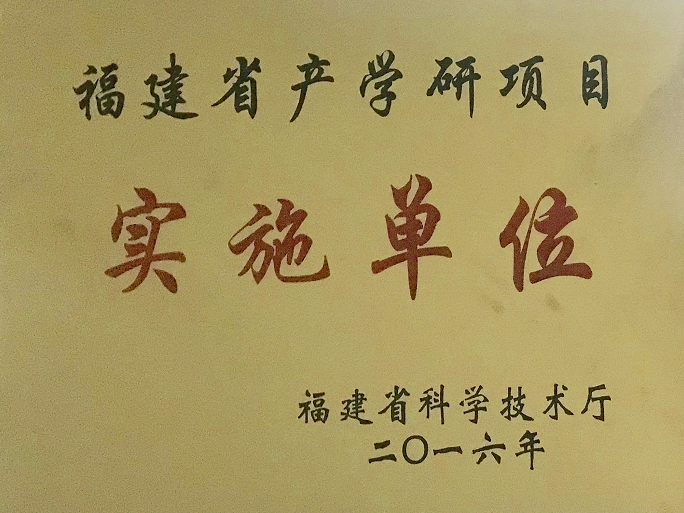 福建省产学研项目
实施单位
福建省科学技术厅
二〇一六年